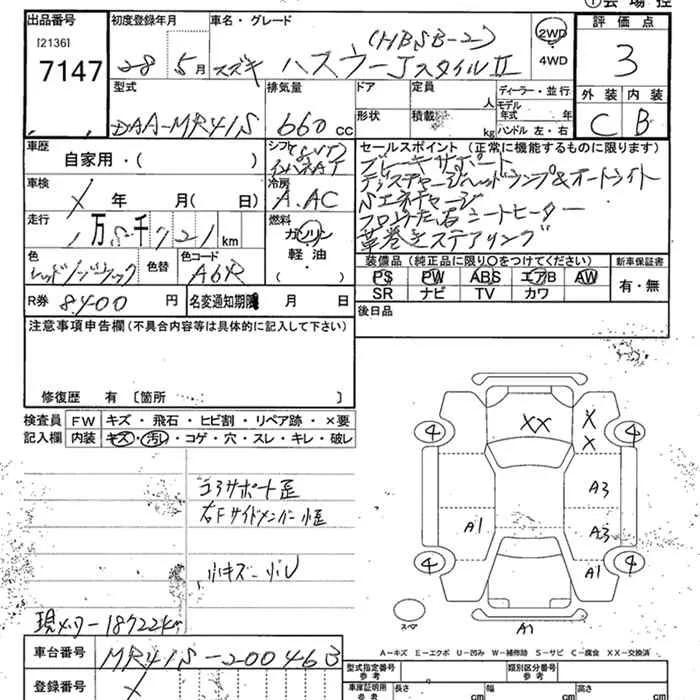 ①会場控
出品番号 初度登録年月 車名・グレード 評価点
[2136] 7147 28 5月 スズキ ハスラーJスタイルⅡ (HBSB-2) 2WD 4WD 3
型式 排気量 ドア 定員 人 ディーラー・並行 外装 内装
DAA-MR41S 660cc 形状 積載 kg モデル年式 年 ハンドル 左・右 C B
車歴 自家用・( ) シフト インパネAT
セールスポイント (正常に機能するものに限ります)
ブレーキサポート
ディスチャージヘッドランプ&オートライト
Sエネチャージ
フロント左右シートヒーター
革巻きステアリング
車検 年 月( 日) 冷房 A.AC
走行 1万8千721km 燃料 ガソリン 軽油 ( )
色 レッド/ブラック 色替 色コード A6R
装備品 (純正品に限り○をつけてください) 新車保証書
PS PW ABS エアB AW 有・無
SR ナビ TV カワ
R券 8400円 名変通知期限 月 日 後日品
注意事項申告欄 (不具合内容等は具体的に記入して下さい)
修復歴 有 〔箇所 〕
検査員 FW キズ・飛石・ヒビ割・リペア跡・×要
記入欄 内装 キズ・汚レ・コゲ・穴・スレ・キレ・破レ
コアサポート歪
右Fサイドメンバー小歪
小キズ 小U
現メーター18722km
XX X X
4 4
A3
A1 A3
4 A1 4
スペア A1
A-キズ E-エクボ U-凹み W-補修跡 S-サビ C-腐食 XX-交換済
車台番号 MR41S-200463
型式指定番号 参考 類別区分番号 参考
登録番号
車庫証明用 参考 長さ cm 幅 cm 高さ cm